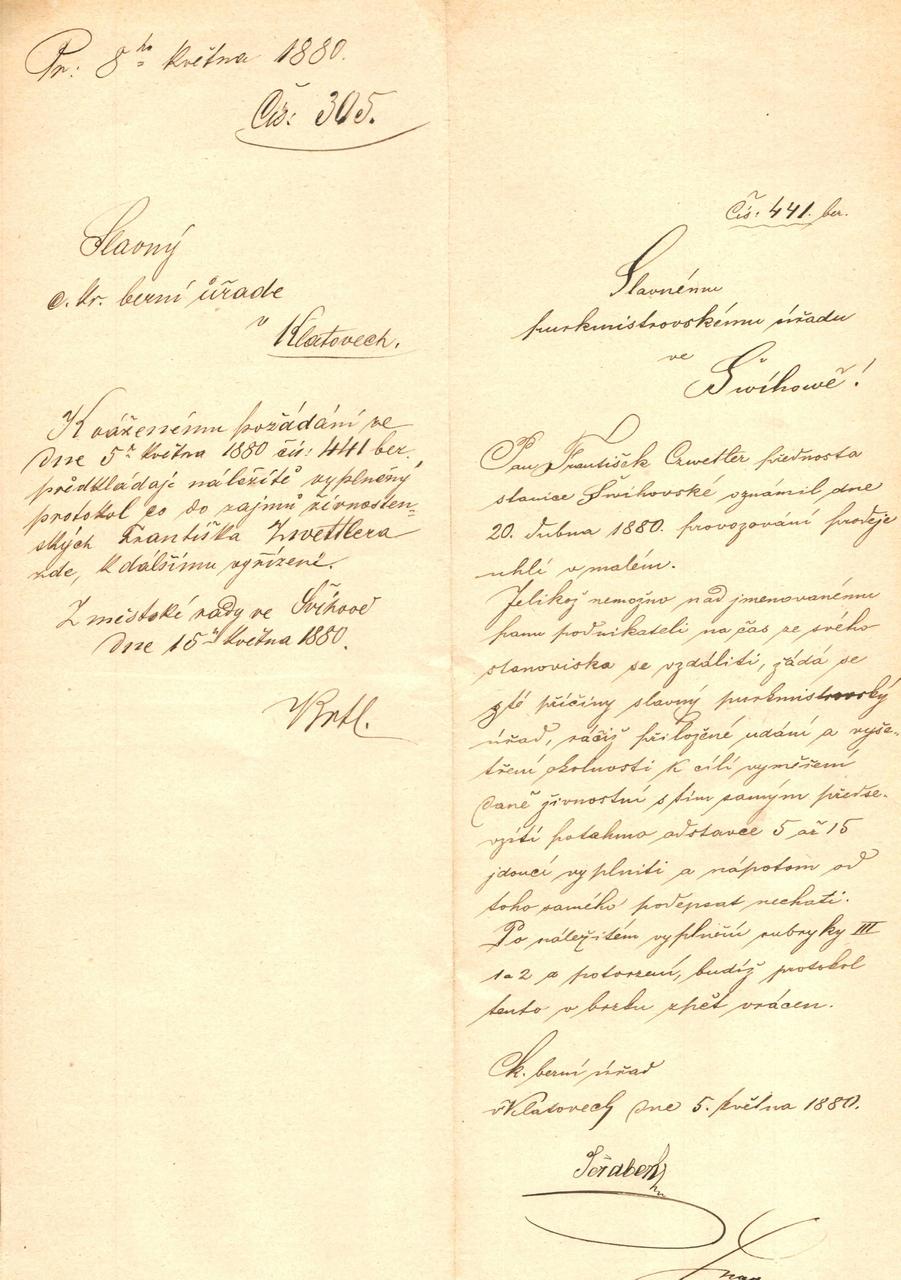 Pr: 8ho května 1880.
Čís: 305.
Slavný
c. kr. berní úřade
v Klatovech.
K váženému požádání ze
dne 5. května 1880 čís: 441 ber.
předkládaje náležitě vyplněný
protokol co do zajmů živnosten-
ských Františka Zwettlera
zde, k dalšímu vyřízení.
Z městské rady ve Švihově
dne 15. května 1880.
Krtl.
Čís: 441. ber.
Slavnému
purkmistrovskému úřadu
ve
Šwihowě!
Pan František Czwetler přednosta
stanice Šwihovské oznámil dne
20. dubna 1880. provozování prodeje
uhlí v malém.
Jelikož nemožno nad jmenovanému
panu podnikateli na čas ze svého
stanoviska se vzdáliti, žádá se
z té příčiny slavný purkmistrovský
úřad, ráčiž přiložené udání a vyše-
tření okolností k cíli vyměření
daně živnostní s tím samým předse-
vzíti potahmo odstavce 5 až 15
jdoucí vyplniti a nápotom od
toho samého podepsat nechati.
Po náležitém vyplnění rubryky III
1 a 2 a potvrzení, budiž protokol
tento v brzku zpět vrácen.
Ck. berní úřad
v Klatovech dne 5. května 1880.
Jeřábek